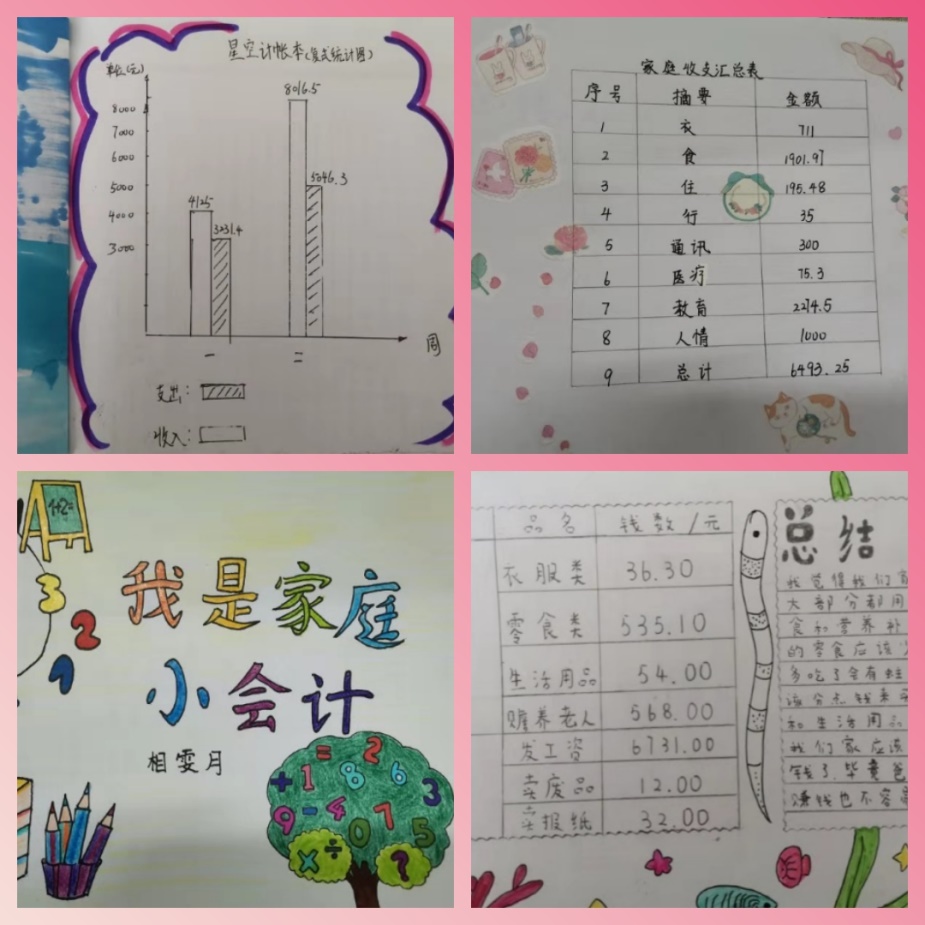 星空计帐本(复式统计图)
单位(元)
8000
7000
6000
5000
4000
3000
4125
3231.4
8016.5
5046.3
一 二 周
支出:
收入:
家庭收支汇总表
序号 摘要 金额
1 衣 711
2 食 1901.97
3 住 195.48
4 行 35
5 通讯 300
6 医疗 75.3
7 教育 2274.5
8 人情 1000
9 总计 6493.25
1+2=
3
2
1
我是家庭
小会计
相雯月
= 2
+ 1 8 6 3
9 - 4 7
0 5
× ÷ ?
品名 钱数/元
衣服类 36.30
零食类 535.10
生活用品 54.00
赡养老人 568.00
发工资 6731.00
卖废品 12.00
卖报纸 32.00
总结
我觉得我们家
大部分都用
食和营养补
的零食应该少
多吃了会有蛀
该分点钱来买
和生活用品
我们家应该
钱了,毕竟爸
赚钱也不容易